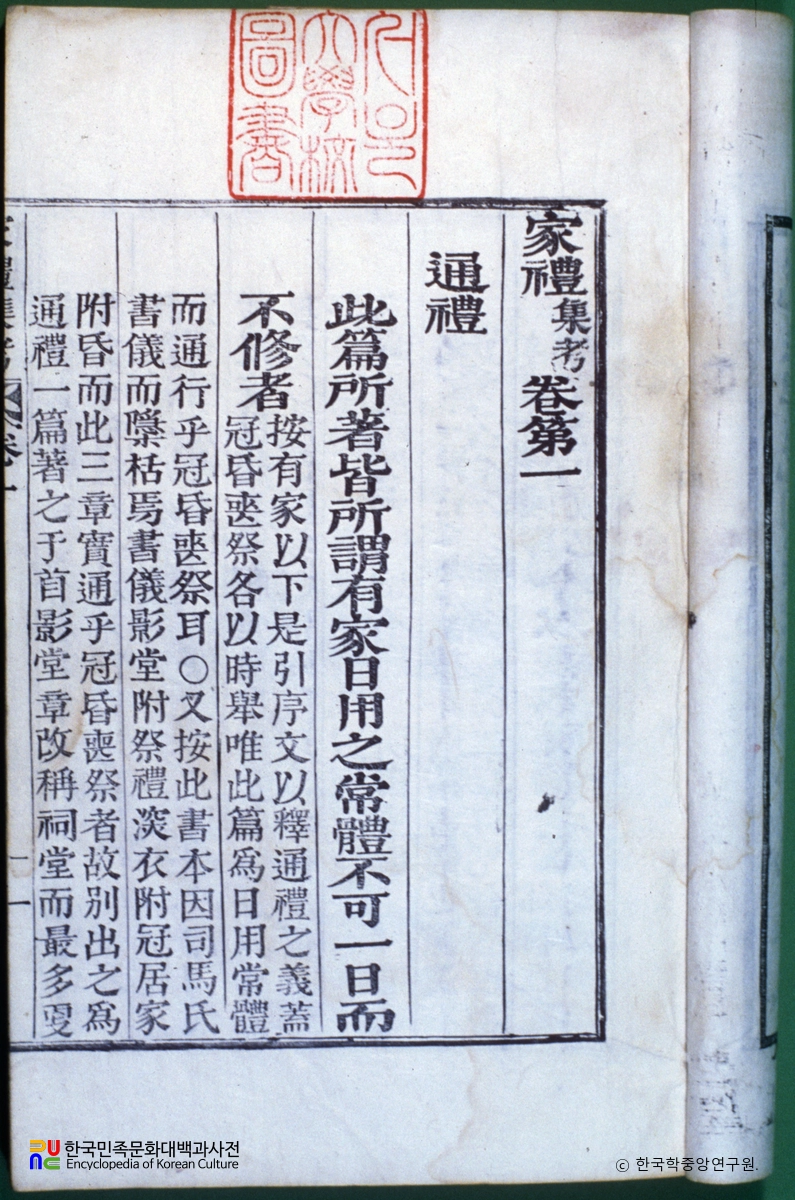 서울
大學校
圖書
家禮集考卷第一
通禮
此篇所著皆所謂有家日用之常體不可一日而
不修者
按有家以下是引序文以釋通禮之義蓋
冠昏喪祭各以時舉唯此篇爲日用常體
而通行乎冠昏喪祭耳○又按此書本因司馬氏
書儀而檃枯焉書儀影堂附祭禮深衣附冠居家
附昏而此三章實通乎冠昏喪祭者故別出之爲
通禮一篇著之于首影堂章改稱祠堂而最多更
한국민족문화대백과사전
Encyclopedia of Korean Culture
© 한국학중앙연구원.